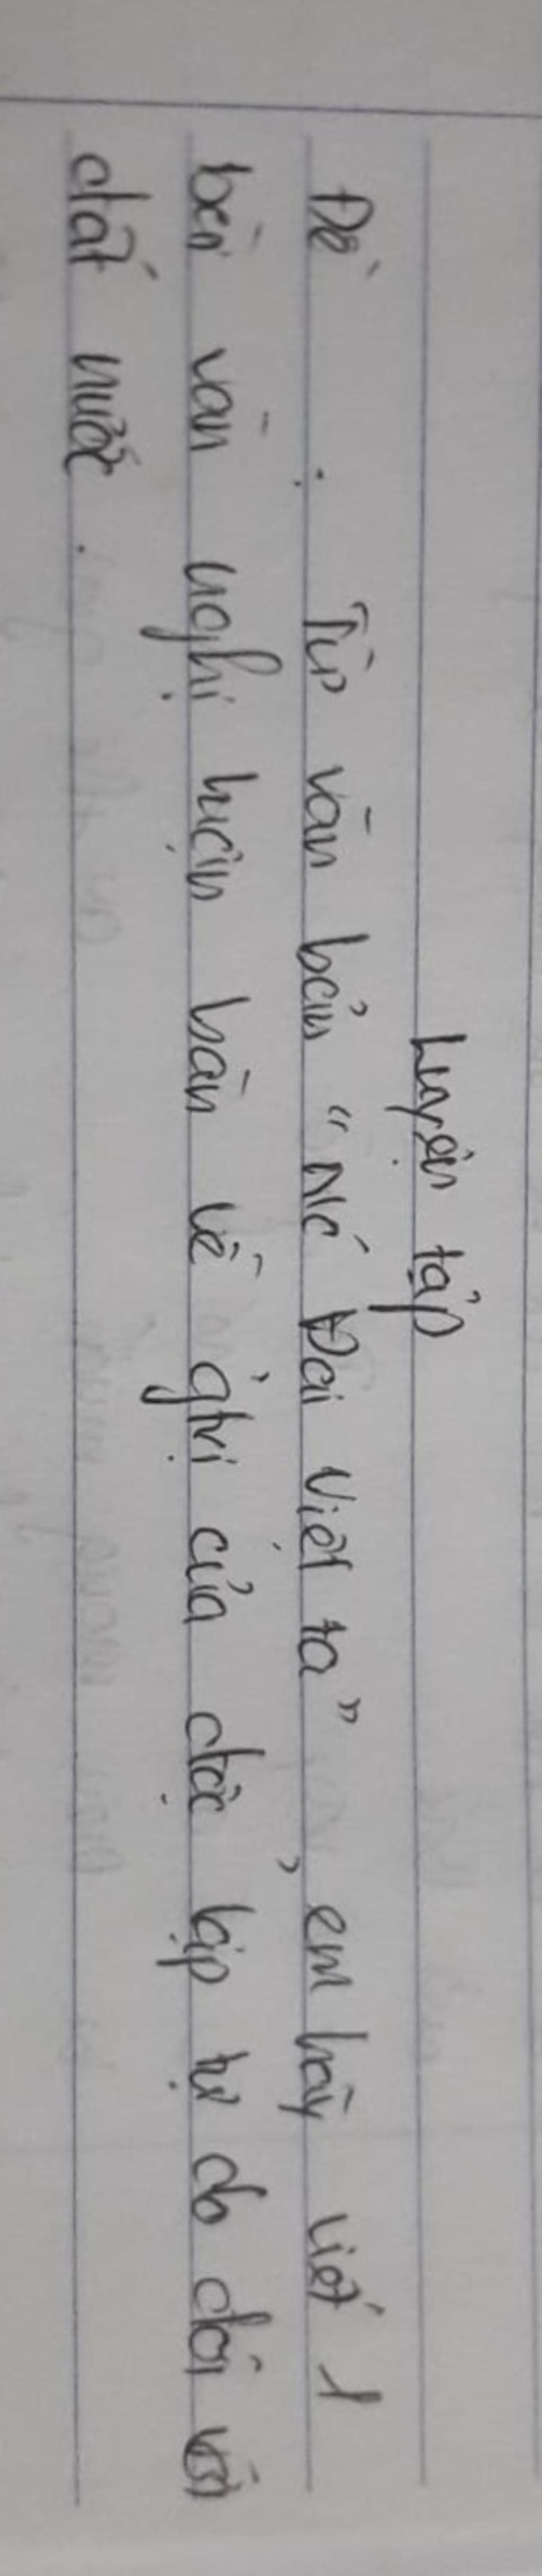 Luyện tập
Đề : Từ văn bản "Nc Đại Việt ta", em hãy viết 1
bài văn nghị luận bàn về gtrị của độc lập tự do đối với
đất nước.